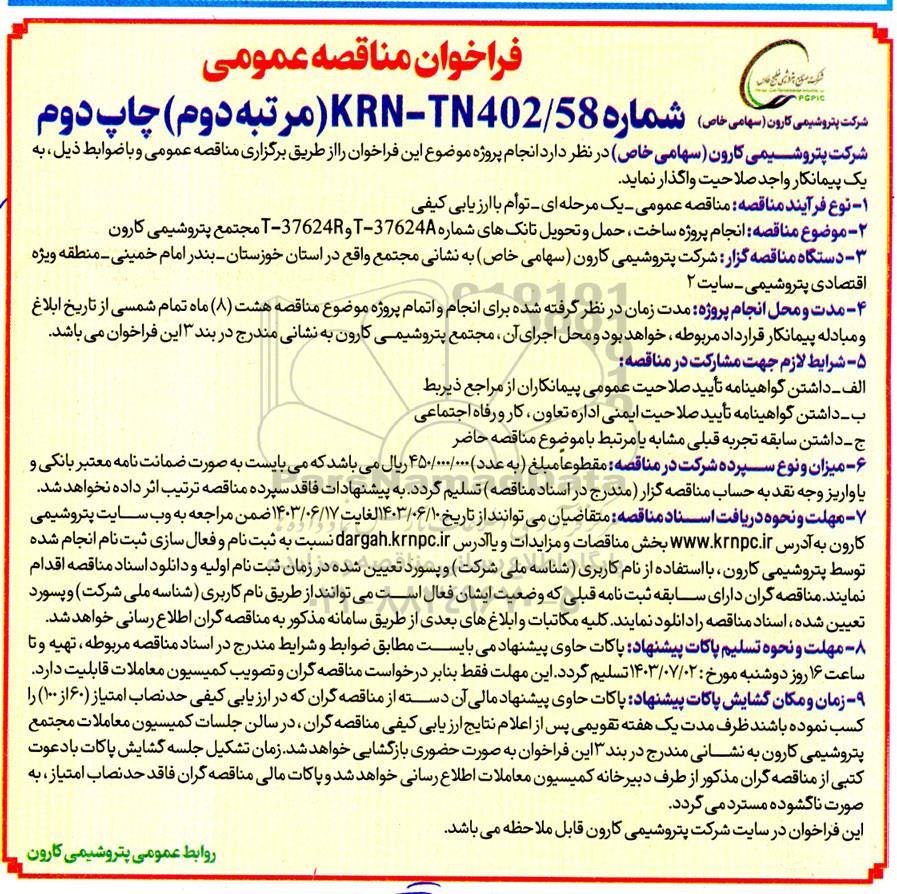 فراخوان مناقصه عمومی
شماره KRN-TN402/58 (مرتبه دوم) چاپ دوم
شرکت صنایع پتروشیمی خلیج فارس
PGPIC
شرکت پتروشیمی کارون (سهامی خاص)
شرکت پتروشیمی کارون (سهامی خاص) در نظر دارد انجام پروژه موضوع این فراخوان را از طریق برگزاری مناقصه عمومی و با ضوابط ذیل، به
یک پیمانکار واجد صلاحیت واگذار نماید.
۱- نوع فرآیند مناقصه: مناقصه عمومی - یک مرحله ای - توأم با ارزیابی کیفی
۲- موضوع مناقصه: انجام پروژه ساخت، حمل و تحویل تانک های شماره T-37624A و T-37624R مجتمع پتروشیمی کارون
۳- دستگاه مناقصه گزار: شرکت پتروشیمی کارون (سهامی خاص) به نشانی مجتمع واقع در استان خوزستان - بندر امام خمینی - منطقه ویژه
اقتصادی پتروشیمی - سایت ۲
۴- مدت و محل انجام پروژه: مدت زمان در نظر گرفته شده برای انجام و اتمام پروژه موضوع مناقصه هشت (۸) ماه تمام شمسی از تاریخ ابلاغ
و مبادله پیمانکار قرارداد مربوطه، خواهد بود و محل اجرای آن، مجتمع پتروشیمی کارون به نشانی مندرج در بند ۳ این فراخوان می باشد.
۵- شرایط لازم جهت مشارکت در مناقصه:
الف - داشتن گواهینامه تأیید صلاحیت عمومی پیمانکاران از مراجع ذیربط
ب - داشتن گواهینامه تأیید صلاحیت ایمنی اداره تعاون، کار و رفاه اجتماعی
ج - داشتن سابقه تجربه قبلی مشابه یا مرتبط با موضوع مناقصه حاضر
۶- میزان و نوع سپرده شرکت در مناقصه: مقطوعاً مبلغ (به عدد) ۴۵۰/۰۰۰/۰۰۰ ریال می باشد که می بایست به صورت ضمانت نامه معتبر بانکی و
یا واریز وجه نقد به حساب مناقصه گزار (مندرج در اسناد مناقصه) تسلیم گردد. به پیشنهادات فاقد سپرده مناقصه ترتیب اثر داده نخواهد شد.
۷- مهلت و نحوه دریافت اسناد مناقصه: متقاضیان می توانند از تاریخ ۱۴۰۳/۰۶/۱۰ لغایت ۱۴۰۳/۰۶/۱۷ ضمن مراجعه به وب سایت پتروشیمی
کارون به آدرس www.krnpc.ir بخش مناقصات و مزایدات و یا آدرس dargah.krnpc.ir نسبت به ثبت نام و فعال سازی ثبت نام انجام شده
توسط پتروشیمی کارون، با استفاده از نام کاربری (شناسه ملی شرکت) و پسورد تعیین شده در زمان ثبت نام اولیه و دانلود اسناد مناقصه اقدام
نمایند. مناقصه گران دارای سابقه ثبت نامه قبلی که وضعیت ایشان فعال است می توانند از طریق نام کاربری (شناسه ملی شرکت) و پسورد
تعیین شده، اسناد مناقصه را دانلود نمایند. کلیه مکاتبات و ابلاغ های بعدی از طریق سامانه مذکور به مناقصه گران اطلاع رسانی خواهد شد.
۸- مهلت و نحوه تسلیم پاکات پیشنهاد: پاکات حاوی پیشنهاد می بایست مطابق ضوابط و شرایط مندرج در اسناد مناقصه مربوطه، تهیه و تا
ساعت ۱۶ روز دوشنبه مورخ: ۱۴۰۳/۰۷/۰۲ تسلیم گردد. این مهلت فقط بنابر درخواست مناقصه گران و تصویب کمیسیون معاملات قابلیت دارد.
۹- زمان و مکان گشایش پاکات پیشنهاد: پاکات حاوی پیشنهاد مالی آن دسته از مناقصه گران که در ارزیابی کیفی حد نصاب امتیاز (۶۰ از ۱۰۰) را
کسب نموده باشند ظرف مدت یک هفته تقویمی پس از اعلام نتایج ارزیابی کیفی مناقصه گران، در سالن جلسات کمیسیون معاملات مجتمع
پتروشیمی کارون به نشانی مندرج در بند ۳ این فراخوان به صورت حضوری بازگشایی خواهد شد. زمان تشکیل جلسه گشایش پاکات با دعوت
کتبی از مناقصه گران مذکور از طرف دبیرخانه کمیسیون معاملات اطلاع رسانی خواهد شد و پاکات مالی مناقصه گران فاقد حد نصاب امتیاز، به
صورت ناگشوده مسترد می گردد.
این فراخوان در سایت شرکت پتروشیمی کارون قابل ملاحظه می باشد.
روابط عمومی پتروشیمی کارون